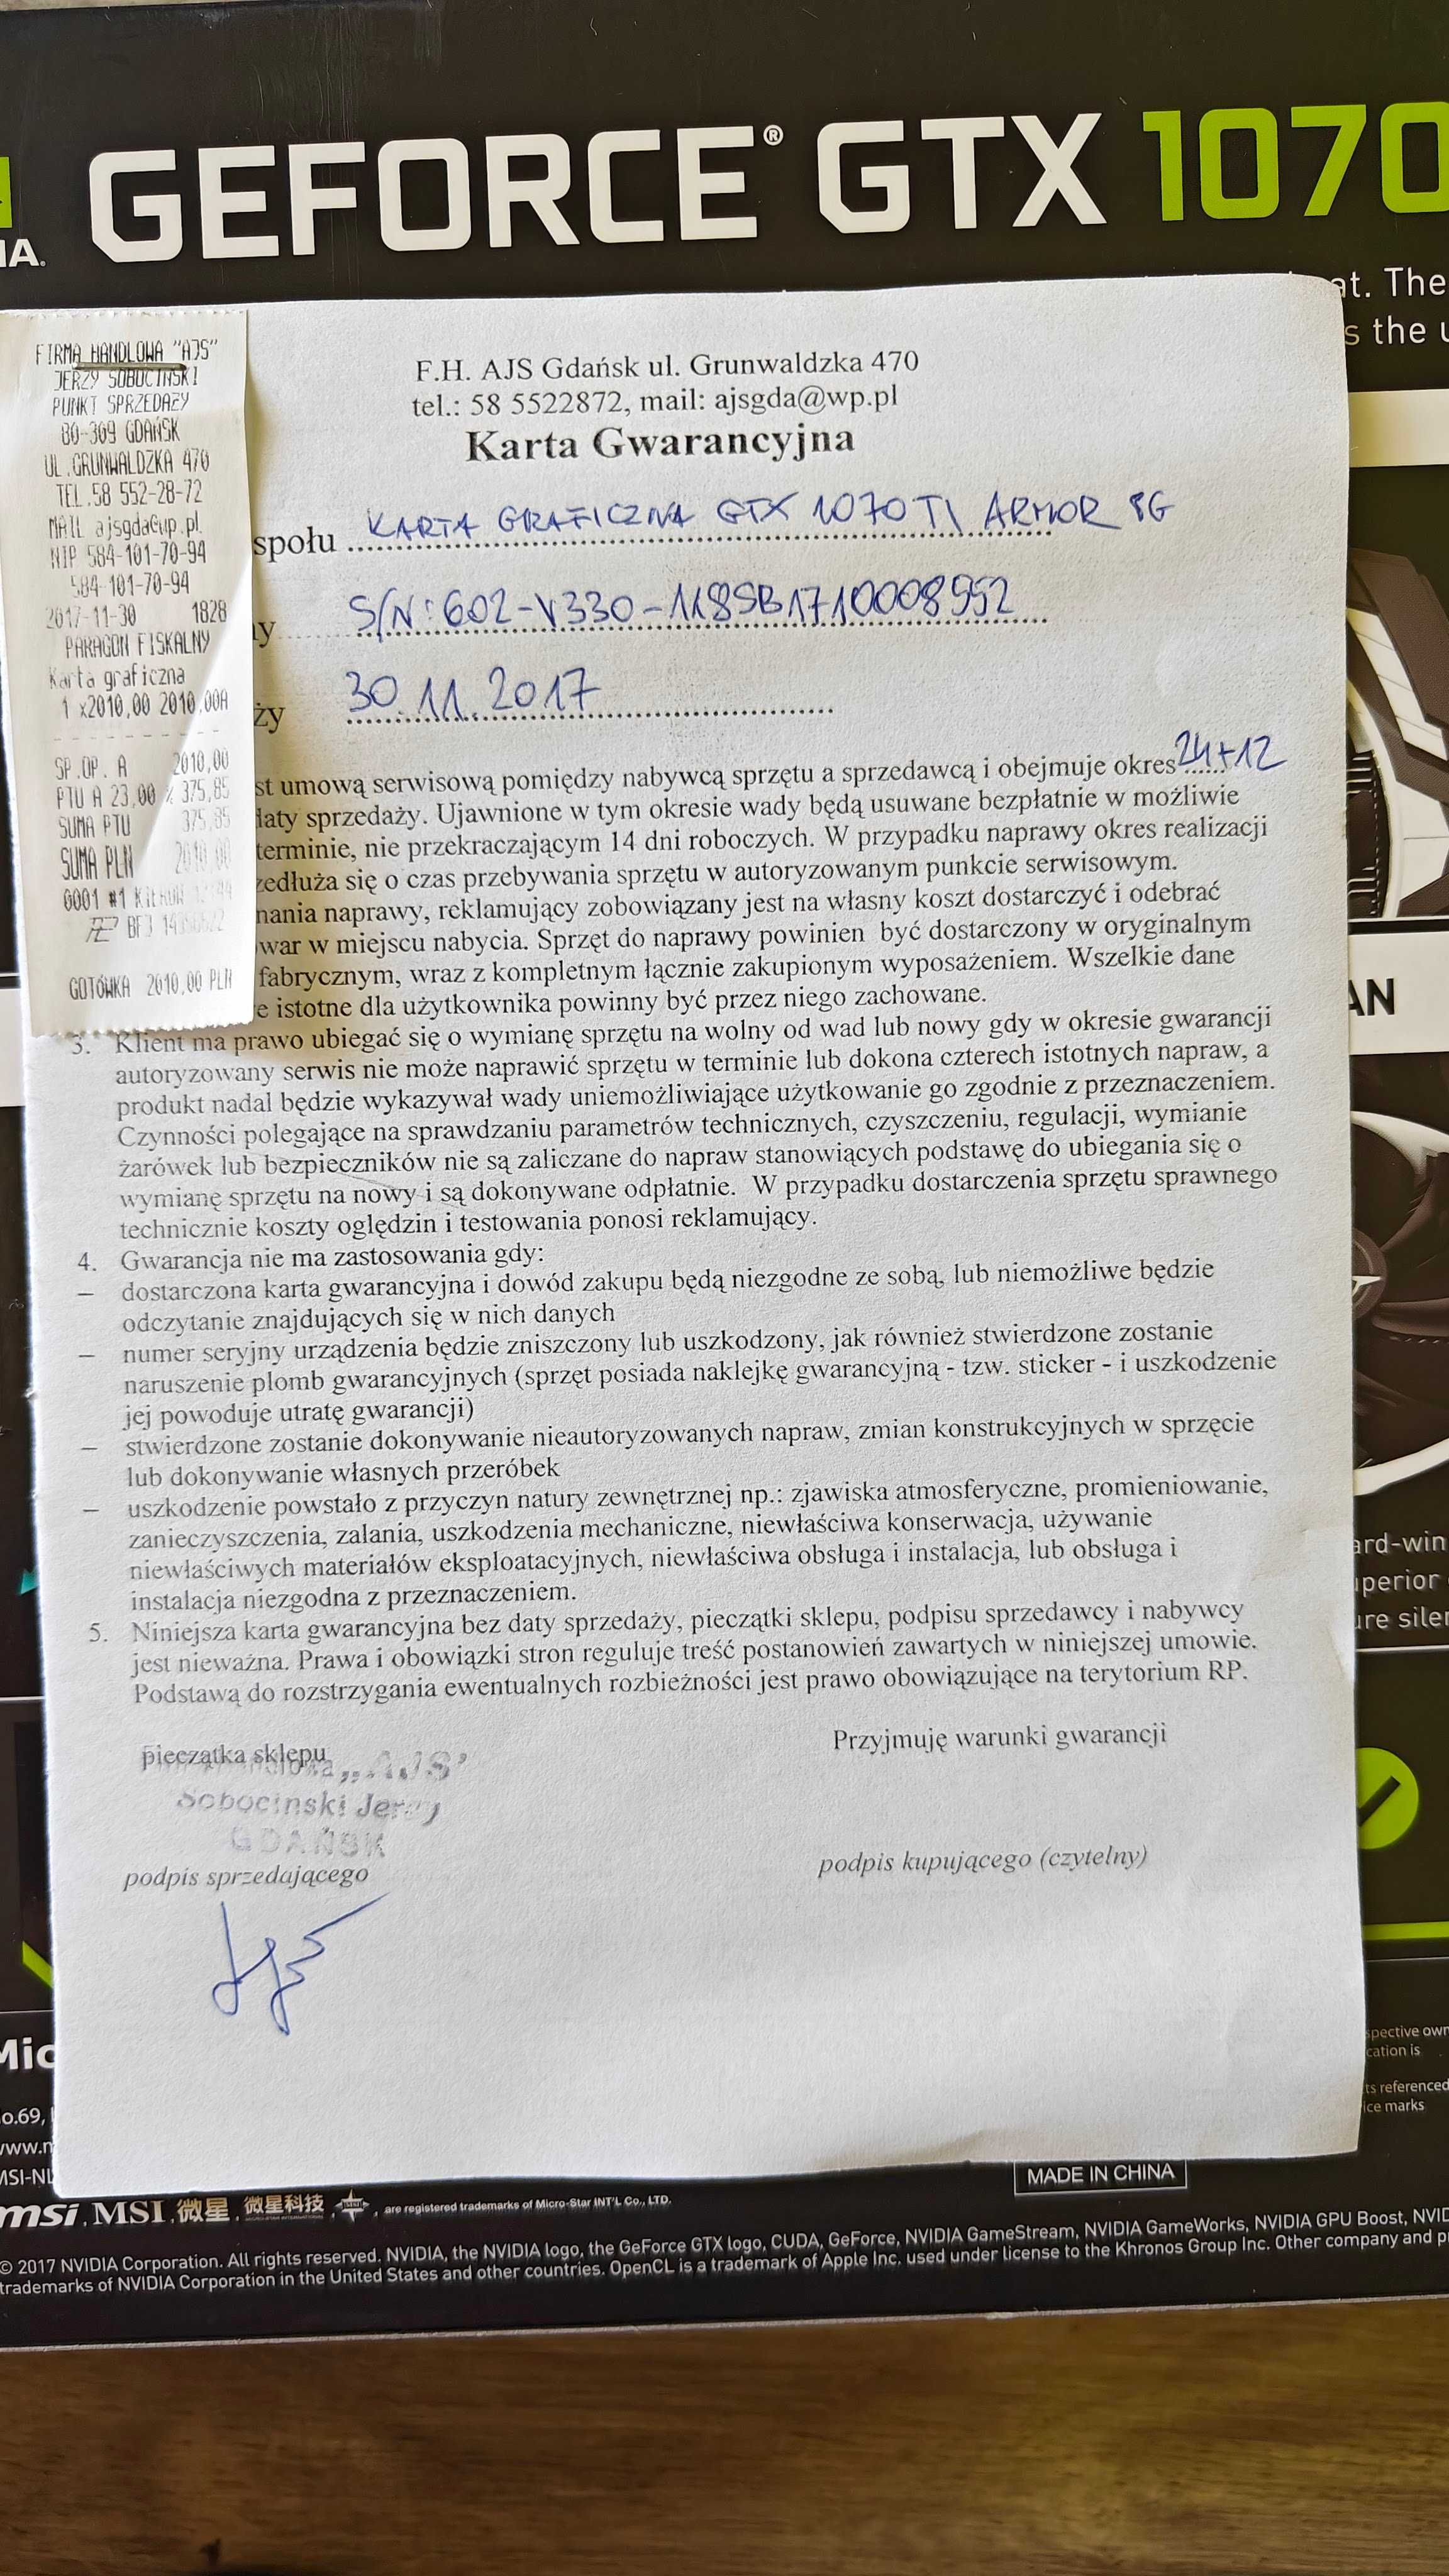 GEFORCE® GTX 1070
IA.
at. The
s the u
FIRMA HANDLOWA "AJS"
JERZY SOBOCIŃSKI
PUNKT SPRZEDAŻY
80-309 GDAŃSK
UL.GRUNWALDZKA 470
TEL.58 552-28-72
MAIL ajsgda@wp.pl
NIP 584-101-70-94
584-101-70-94
2017-11-30 1828
PARAGON FISKALNY
Karta graficzna
1 x2010,00 2010,00A
SP.OP. A 2010,00
PTU A 23,00 % 375,85
SUMA PTU 375,85
SUMA PLN 2010,00
0001 #1
BFJ
GOTÓWKA 2010,00 PLN
F.H. AJS Gdańsk ul. Grunwaldzka 470
tel.: 58 5522872, mail: ajsgda@wp.pl
Karta Gwarancyjna
społu KARTA GRAFICZNA GTX 1070TI ARMOR 8G
y S/N: 602-V330-118SB1710008952
ży 30.11.2017
st umową serwisową pomiędzy nabywcą sprzętu a sprzedawcą i obejmuje okres 24+12
daty sprzedaży. Ujawnione w tym okresie wady będą usuwane bezpłatnie w możliwie
terminie, nie przekraczającym 14 dni roboczych. W przypadku naprawy okres realizacji
zedłuża się o czas przebywania sprzętu w autoryzowanym punkcie serwisowym.
nania naprawy, reklamujący zobowiązany jest na własny koszt dostarczyć i odebrać
war w miejscu nabycia. Sprzęt do naprawy powinien być dostarczony w oryginalnym
fabrycznym, wraz z kompletnym łącznie zakupionym wyposażeniem. Wszelkie dane
e istotne dla użytkownika powinny być przez niego zachowane.
3. Klient ma prawo ubiegać się o wymianę sprzętu na wolny od wad lub nowy gdy w okresie gwarancji
autoryzowany serwis nie może naprawić sprzętu w terminie lub dokona czterech istotnych napraw, a
produkt nadal będzie wykazywał wady uniemożliwiające użytkowanie go zgodnie z przeznaczeniem.
Czynności polegające na sprawdzaniu parametrów technicznych, czyszczeniu, regulacji, wymianie
żarówek lub bezpieczników nie są zaliczane do napraw stanowiących podstawę do ubiegania się o
wymianę sprzętu na nowy i są dokonywane odpłatnie. W przypadku dostarczenia sprzętu sprawnego
technicznie koszty oględzin i testowania ponosi reklamujący.
4. Gwarancja nie ma zastosowania gdy:
– dostarczona karta gwarancyjna i dowód zakupu będą niezgodne ze sobą, lub niemożliwe będzie
odczytanie znajdujących się w nich danych
– numer seryjny urządzenia będzie zniszczony lub uszkodzony, jak również stwierdzone zostanie
naruszenie plomb gwarancyjnych (sprzęt posiada naklejkę gwarancyjną - tzw. sticker - i uszkodzenie
jej powoduje utratę gwarancji)
– stwierdzone zostanie dokonywanie nieautoryzowanych napraw, zmian konstrukcyjnych w sprzęcie
lub dokonywanie własnych przeróbek
– uszkodzenie powstało z przyczyn natury zewnętrznej np.: zjawiska atmosferyczne, promieniowanie,
zanieczyszczenia, zalania, uszkodzenia mechaniczne, niewłaściwa konserwacja, używanie
niewłaściwych materiałów eksploatacyjnych, niewłaściwa obsługa i instalacja, lub obsługa i
instalacja niezgodna z przeznaczeniem.
5. Niniejsza karta gwarancyjna bez daty sprzedaży, pieczątki sklepu, podpisu sprzedawcy i nabywcy
jest nieważna. Prawa i obowiązki stron reguluje treść postanowień zawartych w niniejszej umowie.
Podstawą do rozstrzygania ewentualnych rozbieżności jest prawo obowiązujące na terytorium RP.
Przyjmuję warunki gwarancji
pieczątka sklepu
„AJS"
Sobocinski Jerzy
GDAŃSK
podpis sprzedającego
podpis kupującego (czytelny)
AN
ard-win
uperior
ure siler
Mic
o.69,
www.m
MSI-NL
spective own
cation is
ts referenced
ice marks
MADE IN CHINA
msi, MSI, 微星, 微星科技, are registered trademarks of Micro-Star INT'L Co., LTD.
© 2017 NVIDIA Corporation. All rights reserved. NVIDIA, the NVIDIA logo, the GeForce GTX logo, CUDA, GeForce, NVIDIA GameStream, NVIDIA GameWorks, NVIDIA GPU Boost, NVID
trademarks of NVIDIA Corporation in the United States and other countries. OpenCL is a trademark of Apple Inc. used under license to the Khronos Group Inc. Other company and p